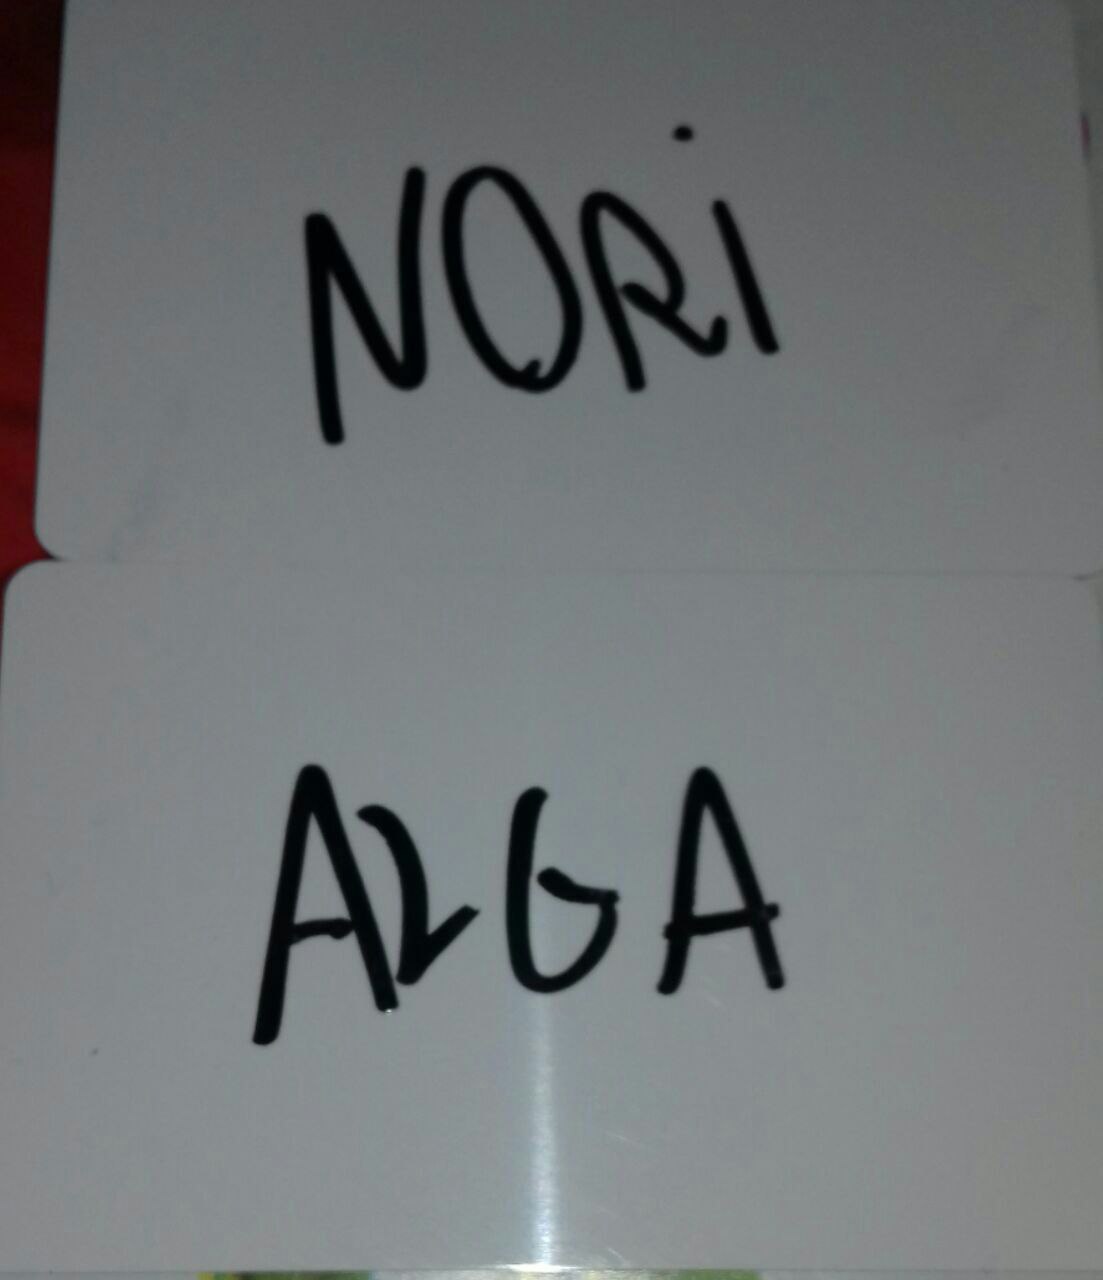 NORi
ALGA